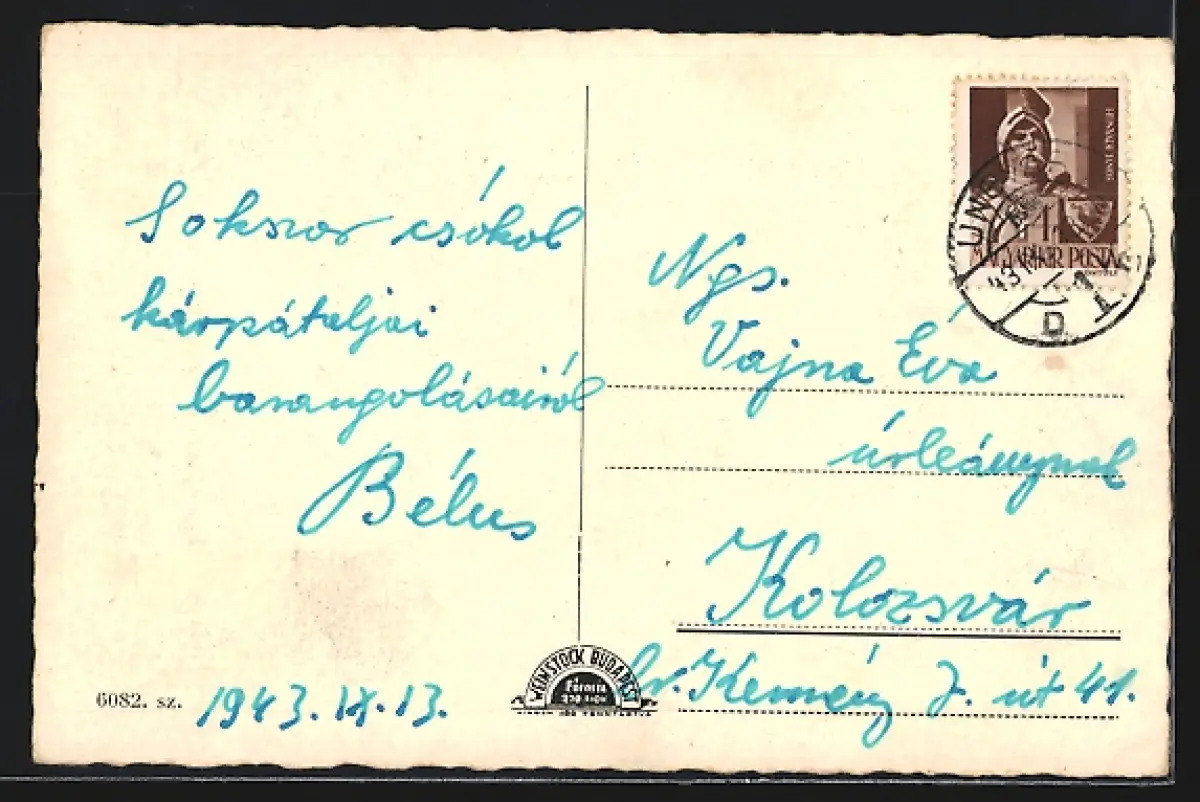 Sokszor csókol
kárpátaljai
barangolásairól
Bélus
6082. sz.
1943. IX. 13.
WEINSTOCK BUDAPEST
HUNYADI JÁNOS
MAGYAR KIR. POSTA
UNG
43
D
Ngs.
Vajna Éva
úrleánynak
Kolozsvár
br. Kemény J. út 41.